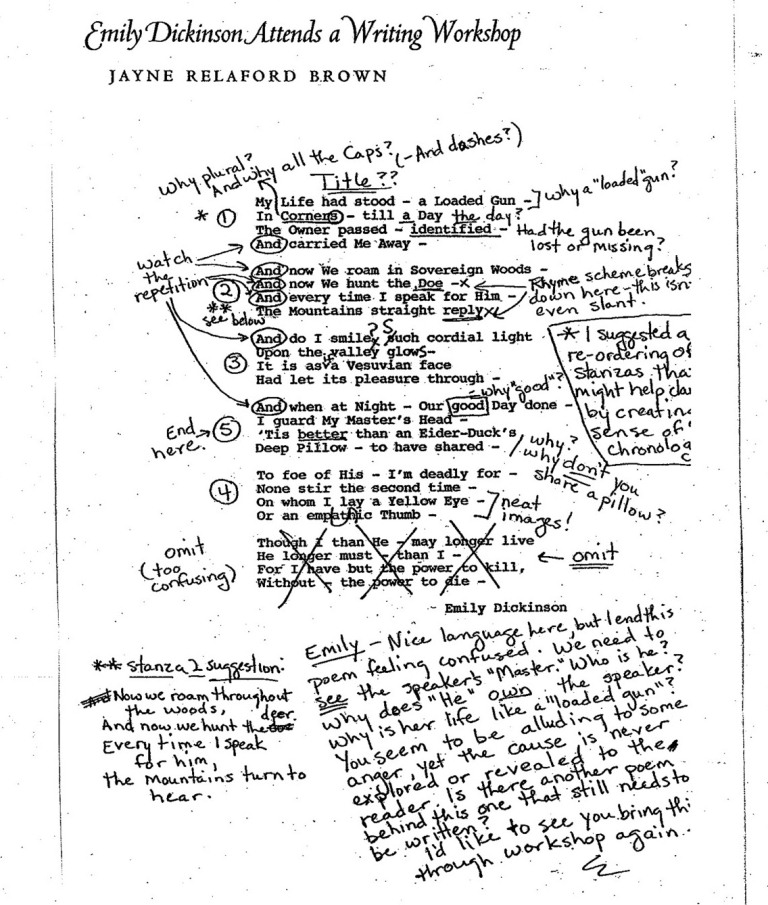 Emily Dickinson Attends a Writing Workshop
JAYNE RELAFORD BROWN
Why plural?
And why all the Caps? (-And dashes?)
Title??
My Life had stood - a Loaded Gun -
why a "loaded" gun?
* 1
In Corners - till a Day the day?
The Owner passed - identified -
Had the gun been
lost or missing?
And carried Me Away -
watch
the
repetition
And now We roam in Sovereign Woods -
2
And now We hunt the Doe -x
Rhyme scheme breaks
down here - this isn
even slant.
And every time I speak for Him -
The Mountains straight reply x
**
see below
And do I smile, such cordial light
? S
Upon the valley glow -
3
It is as a Vesuvian face
Had let its pleasure through -
* I suggested a
re-ordering of
stanzas tha
might help cla
by creatin
sense of
chronolog
c
why "good"?
And when at Night - Our good Day done -
End
here.
5
I guard My Master's Head -
'Tis better than an Eider-Duck's
Deep Pillow - to have shared -
why?
why don't you
share a pillow?
To foe of His - I'm deadly for -
4
None stir the second time -
On whom I lay a Yellow Eye -
Or an emphatic Thumb -
neat
images!
omit
(too
confusing)
Though I than He - may longer live
He longer must - than I -
For I have but the power to kill,
Without - the power to die -
omit
- Emily Dickinson
** stanza 2 suggestion:
Now we roam throughout
the woods,
And now we hunt the deer.
Every time I speak
for him,
the Mountains turn to
hear.
Emily - Nice language here, but I end this
poem feeling confused. We need to
see the speaker's "Master." Who is he?
Why does "He" own the speaker?
Why is her life like a "loaded gun"?
You seem to be alluding to some
anger, yet the cause is never
explored or revealed to the
reader. Is there another poem
behind this one that still needs to
be written?
I'd like to see you bring thi
through workshop again.